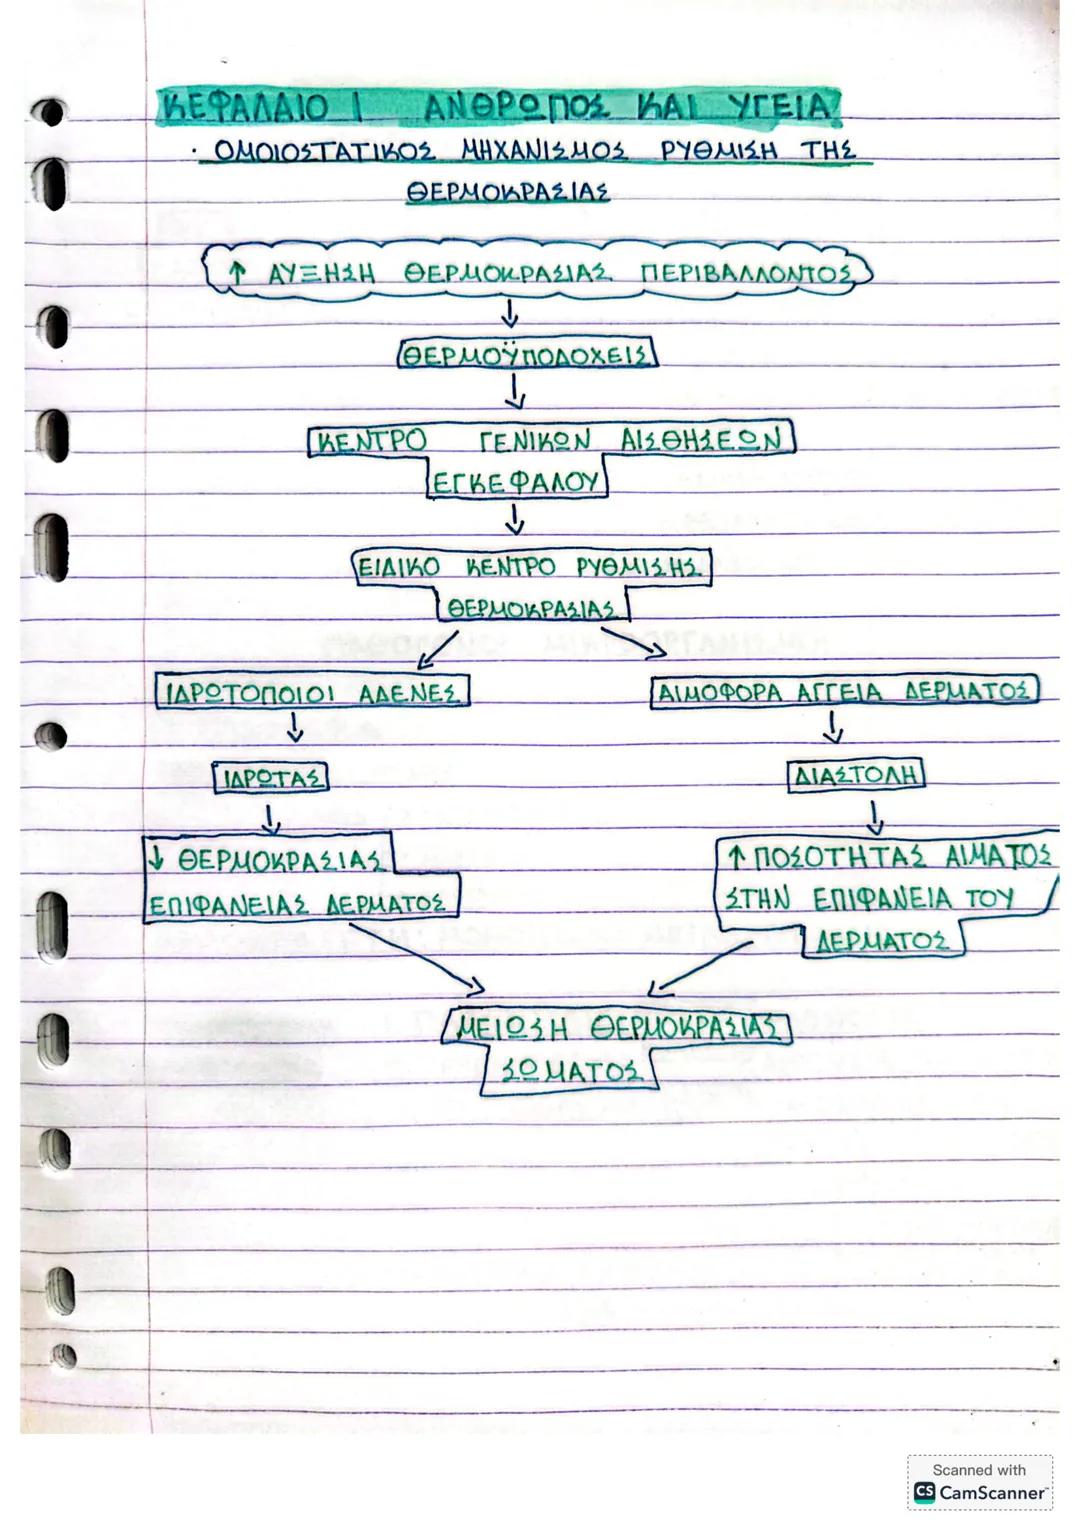 ΚΕΦΑΛΑΙΟ 1 ΑΝΘΡΩΠΟΣ ΚΑΙ ΥΓΕΙΑ
· ΟΜΟΙΟΣΤΑΤΙΚΟΣ ΜΗΧΑΝΙΣΜΟΣ ΡΥΘΜΙΣΗ ΤΗΣ
ΘΕΡΜΟΚΡΑΣΙΑΣ
↑ ΑΥΞΗΣΗ ΘΕΡΜΟΚΡΑΣΙΑΣ ΠΕΡΙΒΑΛΛΟΝΤΟΣ
↓
ΘΕΡΜΟΫΠΟΔΟΧΕΙΣ
↓
ΚΕΝΤΡΟ ΓΕΝΙΚΩΝ ΑΙΣΘΗΣΕΩΝ
ΕΓΚΕΦΑΛΟΥ
↓
ΕΙΔΙΚΟ ΚΕΝΤΡΟ ΡΥΘΜΙΣΗΣ
ΘΕΡΜΟΚΡΑΣΙΑΣ
↙ ↘
ΙΔΡΩΤΟΠΟΙΟΙ ΑΔΕΝΕΣ ΑΙΜΟΦΟΡΑ ΑΓΓΕΙΑ ΔΕΡΜΑΤΟΣ
↓ ↓
ΙΔΡΩΤΑΣ ΔΙΑΣΤΟΛΗ
↓ ↓
↓ ΘΕΡΜΟΚΡΑΣΙΑΣ ↑ ΠΟΣΟΤΗΤΑΣ ΑΙΜΑΤΟΣ
ΕΠΙΦΑΝΕΙΑΣ ΔΕΡΜΑΤΟΣ ΣΤΗΝ ΕΠΙΦΑΝΕΙΑ ΤΟΥ
ΔΕΡΜΑΤΟΣ
↘ ↙
ΜΕΙΩΣΗ ΘΕΡΜΟΚΡΑΣΙΑΣ
ΣΩΜΑΤΟΣ
Scanned with
CS CamScanner